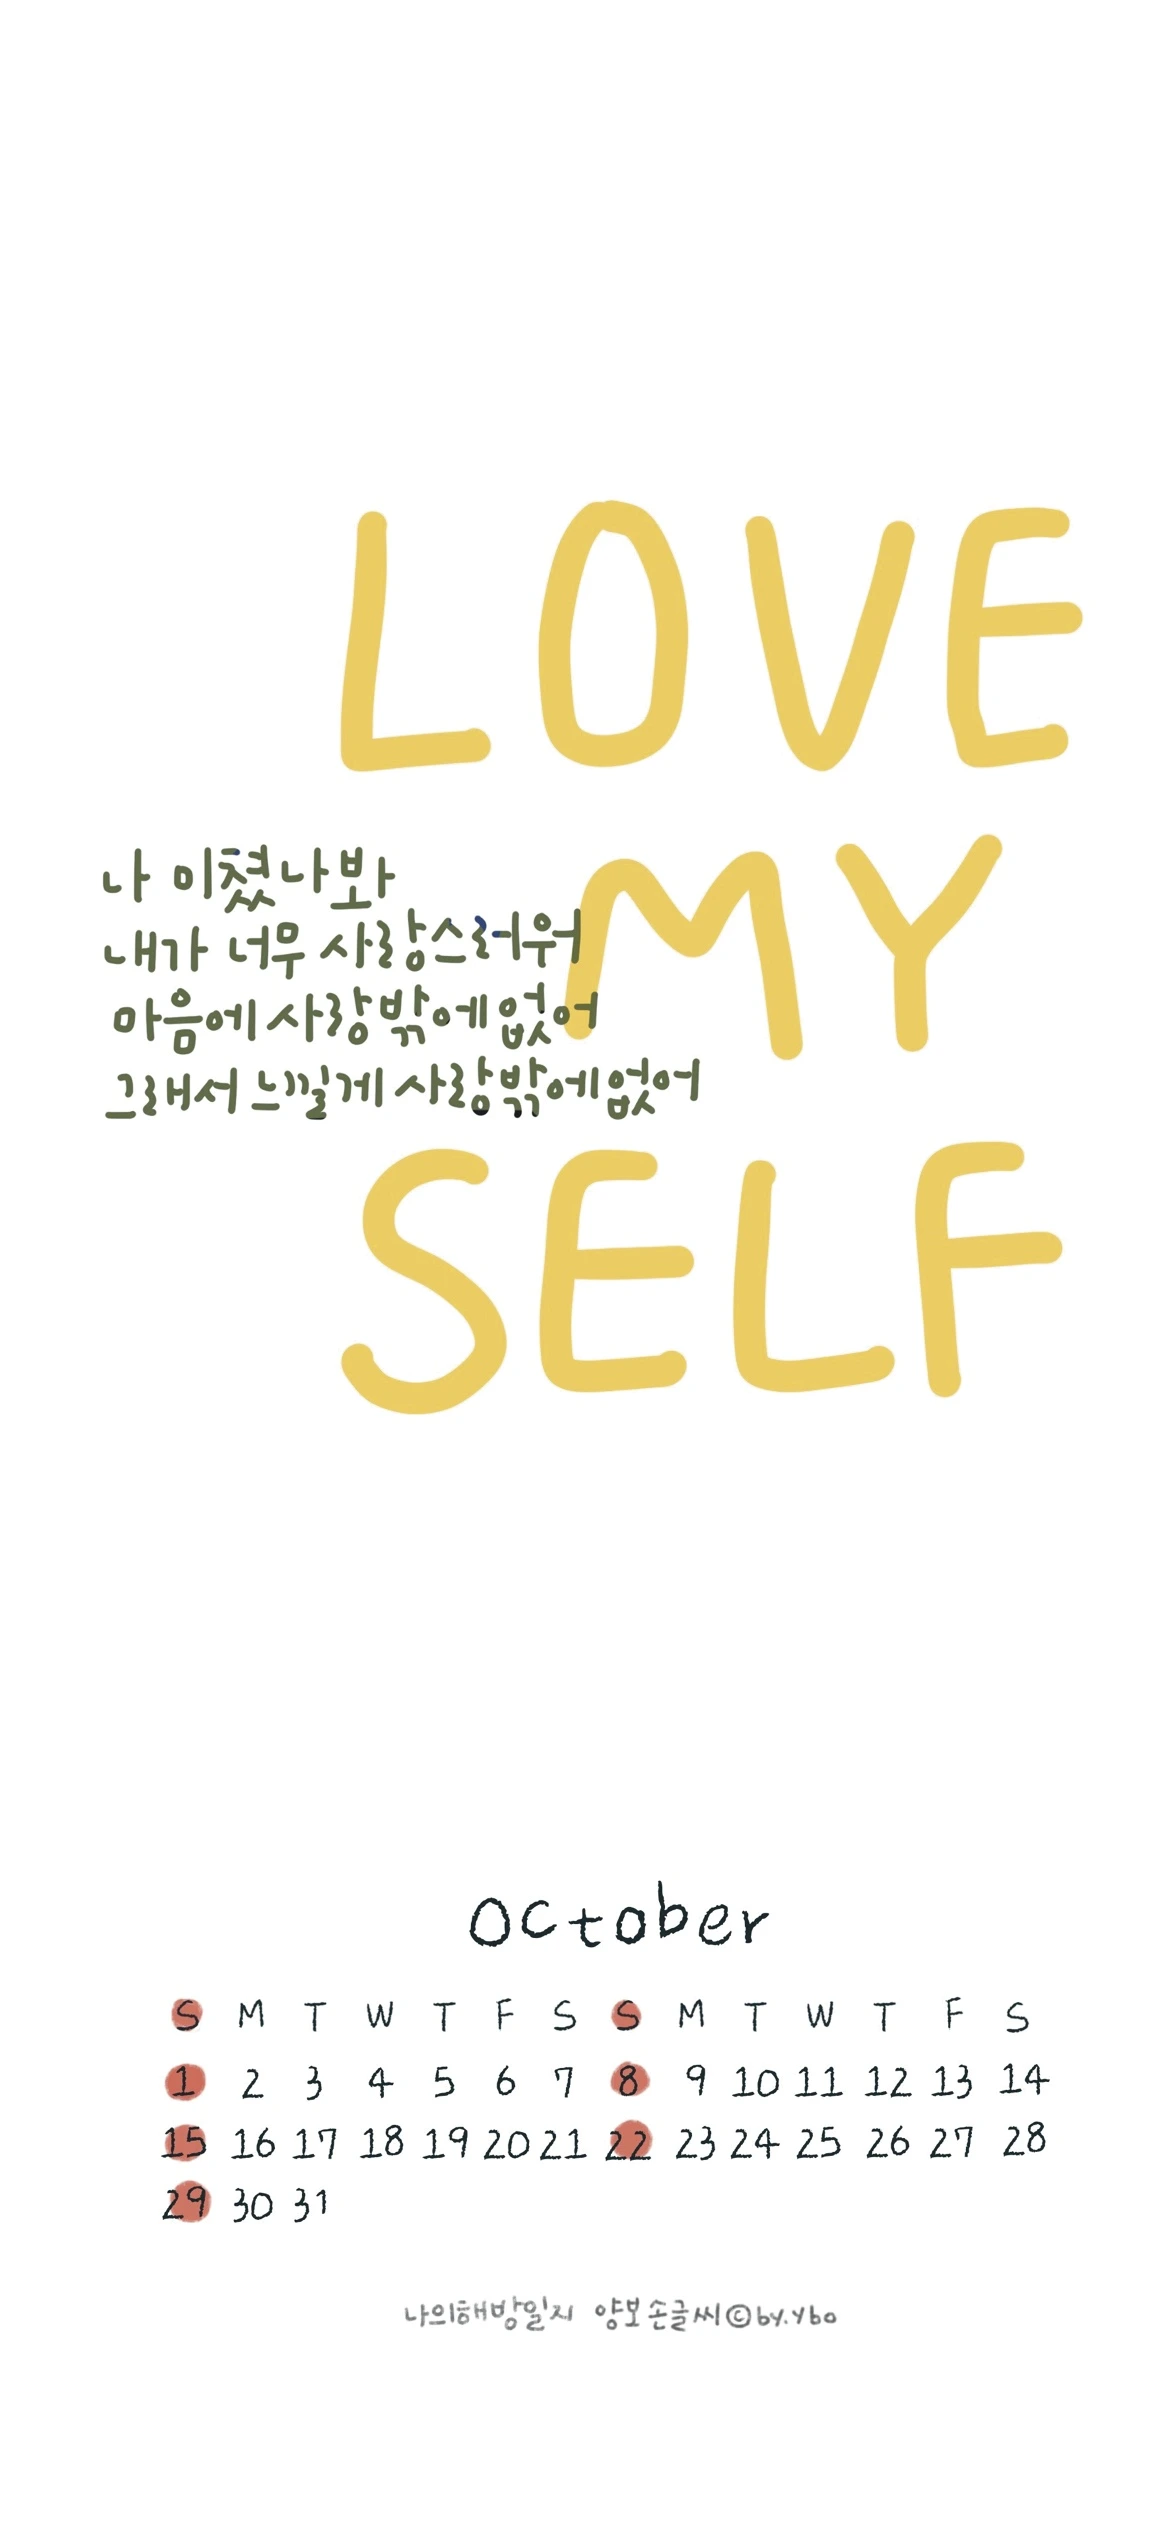 LOVE
나 이쳤나봐
내가 너무 사랑스러워
마음에 사랑밖에 없어
그래서 느낄게 사랑밖에 없어
MY
SELF
October
S M T W T F S S M T W T F S
1 2 3 4 5 6 7 8 9 10 11 12 13 14
15 16 17 18 19 20 21 22 23 24 25 26 27 28
29 30 31
나의해방일지 양보손글씨©by.ybo